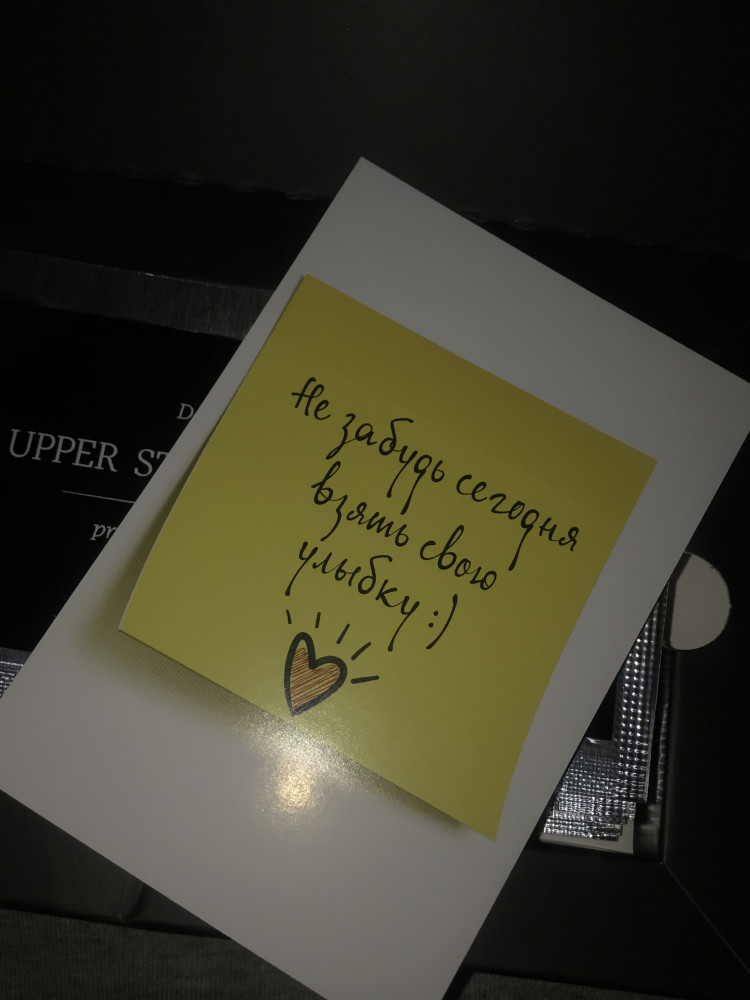 D
UPPER ST
pr
Не забудь сегодня
взять свою
улыбку :)